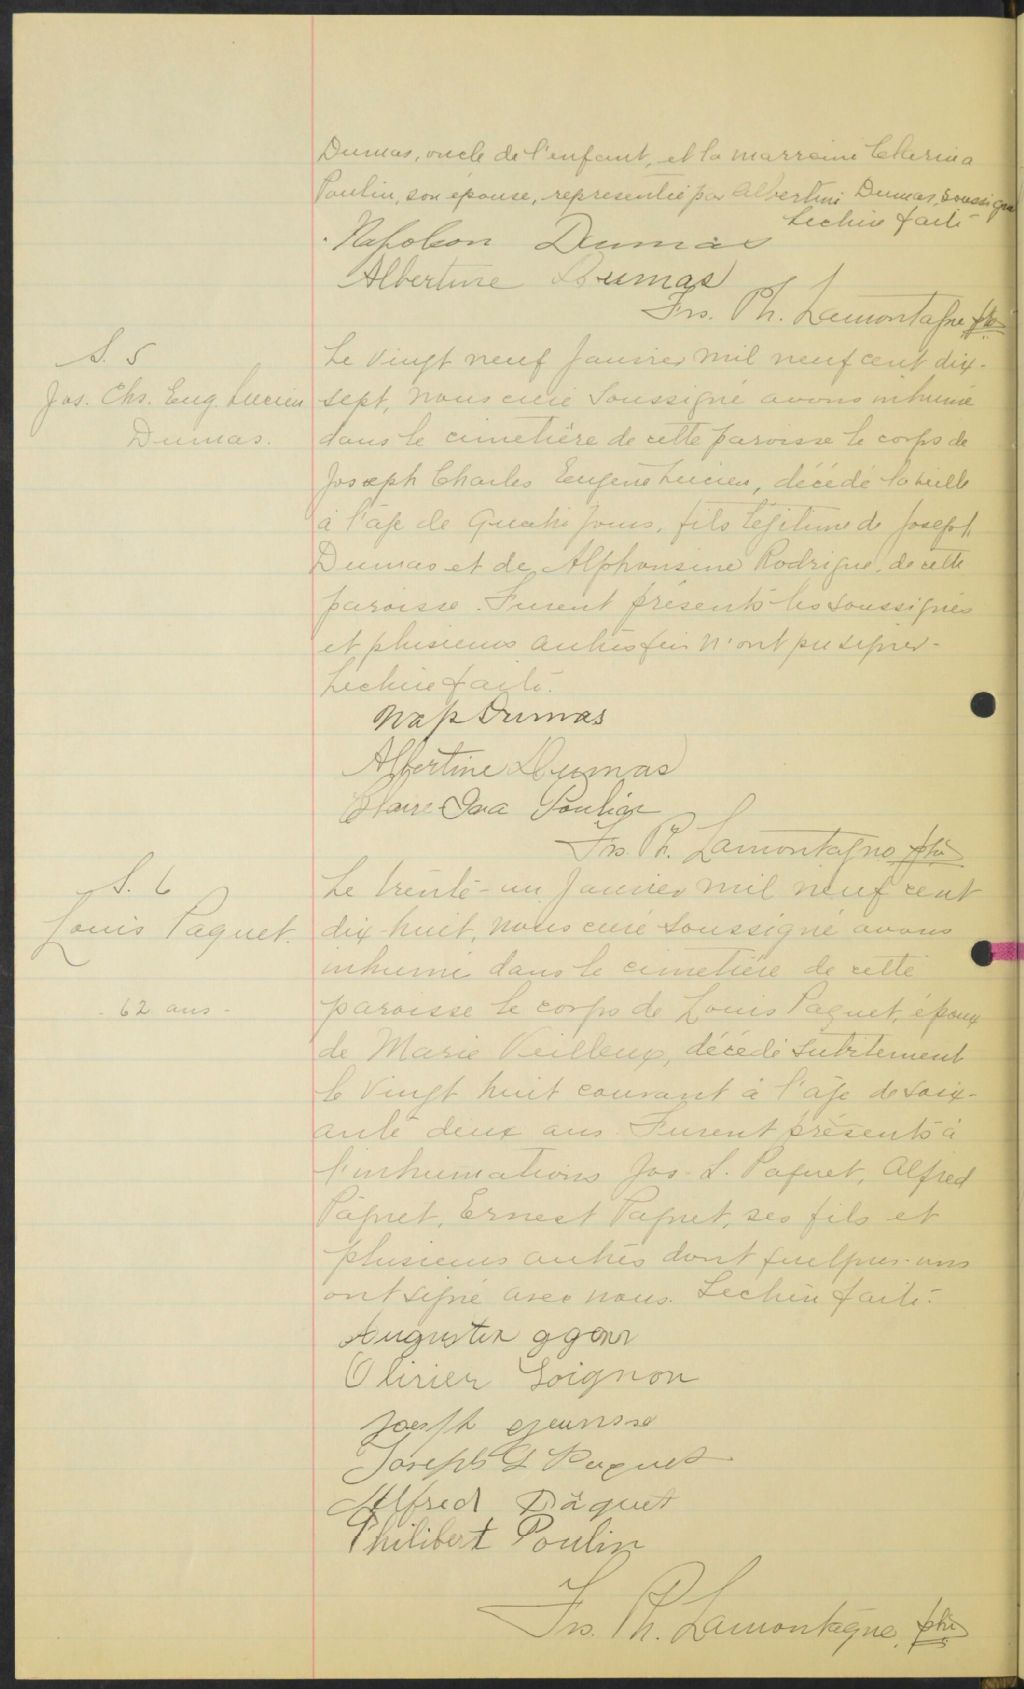 Dumas, oncle de l'enfant, et la marraine Clarina
Poulin, son épouse, representée par Albertine Dumas, soussigné
Lecture faite
Napoleon Dumas
Albertine Dumas
Frs. Ph. Lamontagne ptre
S. 5
Jos. Chs. Eug. Lucien
Dumas.
Le vingt neuf Janvier mil neuf cent dix-
sept, nous curé soussigné avons inhumé
dans le cimetière de cette paroisse le corps de
Joseph Charles Eugène Lucien, décédé la veille
à l'âge de quatre jours, fils légitime de Joseph
Dumas et de Alphonsine Rodrigue, de cette
paroisse. Furent présents les soussignés
et plusieurs autres qui n'ont pu signer-
Lecture faite.
Nap Dumas
Albertine Dumas
Claire Ina Poulin
Frs. Ph. Lamontagne ptre
S. 6
Louis Paquet.
62 ans-
Le trente-un Janvier mil neuf cent
dix-huit, nous curé soussigné avons
inhumé dans le cimetière de cette
paroisse le corps de Louis Paquet, époux
de Marie Veilleux, décédé subitement
le vingt huit courant à l'âge de soix-
ante deux ans. Furent présents à
l'inhumations Jos-L. Paquet, Alfred
Pâquet, Ernest Paquet, ses fils et
plusieurs autres dont quelques-uns
ont signé avec nous. Lecture faite.
Augustin
Olivier Loignon
Joseph
Joseph L Paquet
Alfred Pâquet
Philibert Poulin
Frs. Ph. Lamontagne, ptre